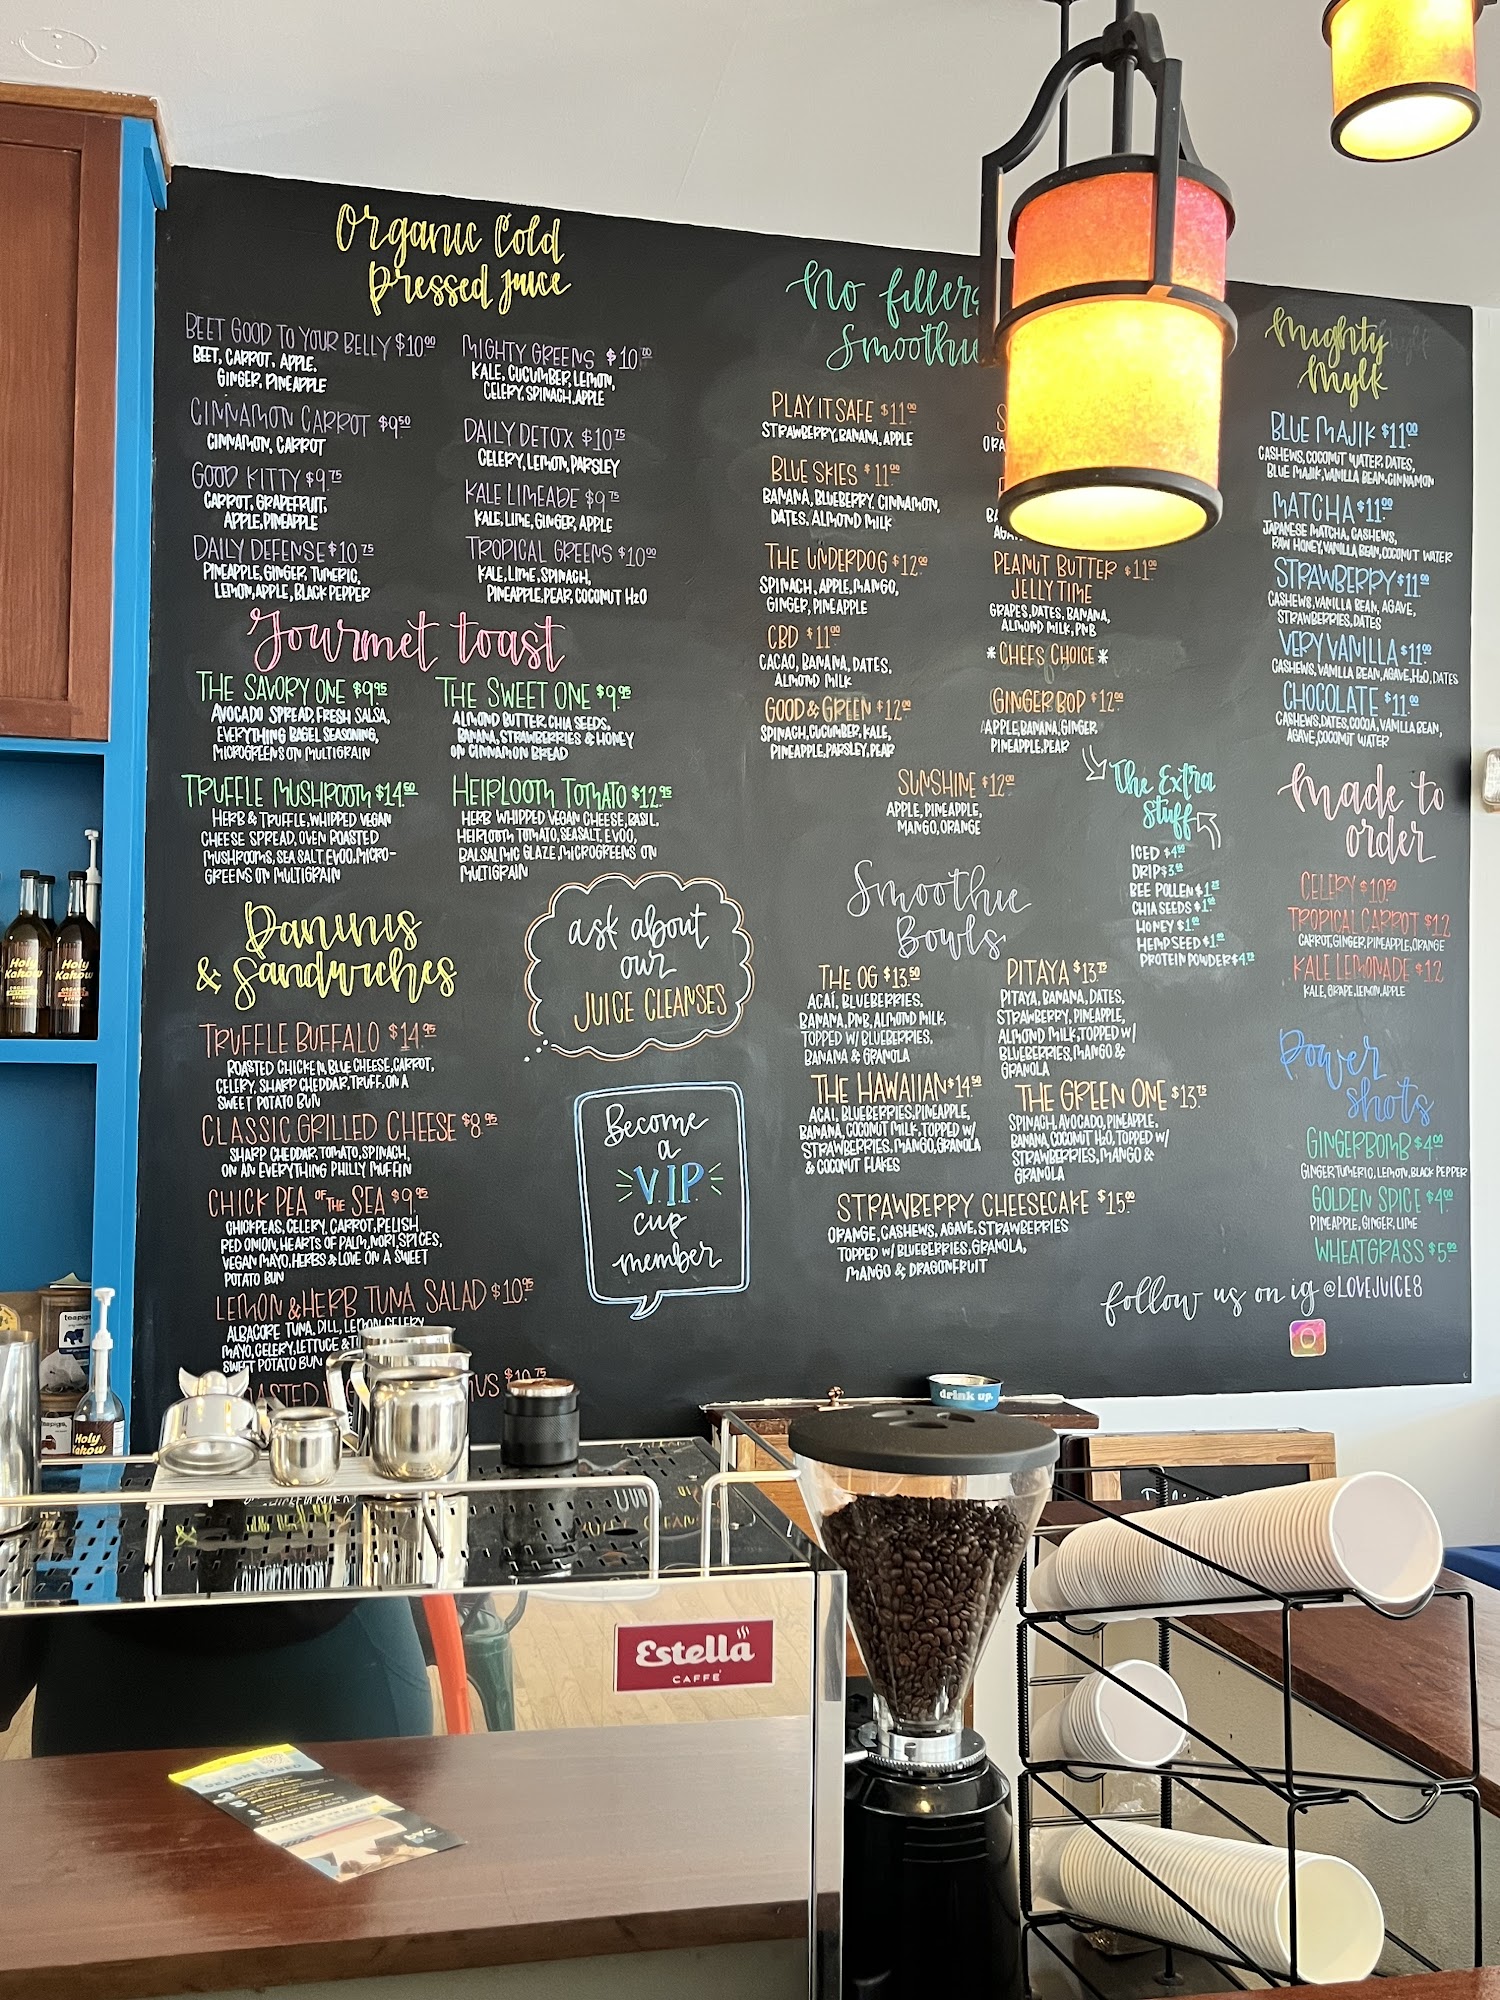 Organic Cold
Pressed Juice
BEET GOOD TO YOUR BELLY $10.00
BEET, CARROT, APPLE,
GINGER, PINEAPPLE
CINNAMON CARROT $9.50
CINNAMON, CARROT
GOOD KITTY $9.75
CARROT, GRAPEFRUIT,
APPLE, PINEAPPLE
DAILY DEFENSE $10.75
PINEAPPLE, GINGER, TUMERIC,
LEMON, APPLE, BLACK PEPPER
MIGHTY GREENS $10.00
KALE, CUCUMBER, LEMON,
CELERY, SPINACH, APPLE
DAILY DETOX $10.75
CELERY, LEMON, PARSLEY
KALE LIMEADE $9.75
KALE, LIME, GINGER, APPLE
TROPICAL GREENS $10.00
KALE, LIME, SPINACH,
PINEAPPLE, PEAR, COCONUT H2O
Gourmet toast
THE SAVORY ONE $9.95
AVOCADO SPREAD, FRESH SALSA,
EVERYTHING BAGEL SEASONING,
MICROGREENS ON MULTIGRAIN
THE SWEET ONE $9.95
ALMOND BUTTER, CHIA SEEDS,
BANANA, STRAWBERRIES & HONEY
ON CINNAMON BREAD
TRUFFLE MUSHROOM $14.50
HERB & TRUFFLE, WHIPPED VEGAN
CHEESE SPREAD, OVEN ROASTED
MUSHROOMS, SEA SALT, EVOO, MICRO-
GREENS ON MULTIGRAIN
HEIRLOOM TOMATO $12.95
HERB WHIPPED VEGAN CHEESE, BASIL,
HEIRLOOM TOMATO, SEASALT, EVOO,
BALSALMIC GLAZE, MICROGREENS ON
MULTIGRAIN
Paninis
& Sandwiches
TRUFFLE BUFFALO $14.95
ROASTED CHICKEN, BLUE CHEESE, CARROT,
CELERY, SHARP CHEDDAR, TRUFF, ON A
SWEET POTATO BUN
CLASSIC GRILLED CHEESE $8.95
SHARP CHEDDAR, TOMATO, SPINACH,
ON AN EVERYTHING PHILLY MUFFIN
CHICK PEA OF THE SEA $9.95
CHICKPEAS, CELERY, CARROT, RELISH,
RED ONION, HEARTS OF PALM, NORI, SPICES,
VEGAN MAYO, HERBS & LOVE ON A SWEET
POTATO BUN
LEMON & HERB TUNA SALAD $10.95
ALBACORE TUNA, DILL, LEMON, CELERY
MAYO, CELERY, LETTUCE &
SWEET POTATO BUN
$10.75
ask about
our
JUICE CLEANSES
Become
a
V.I.P
cup
member
No fillers
Smoothie
PLAY IT SAFE $11.00
STRAWBERRY, BANANA, APPLE
BLUE SKIES $11.00
BANANA, BLUEBERRY, CINNAMON,
DATES, ALMOND MILK
THE UNDERDOG $12.00
SPINACH, APPLE, MANGO,
GINGER, PINEAPPLE
CBD $11.00
CACAO, BANANA, DATES,
ALMOND MILK
GOOD & GREEN $12.00
SPINACH, CUCUMBER, KALE,
PINEAPPLE, PARSLEY, PEAR
PEANUT BUTTER $11.00
JELLY TIME
GRAPES, DATES, BANANA,
ALMOND MILK, PNB
*CHEFS CHOICE*
GINGER BOP $12.00
APPLE, BANANA, GINGER,
PINEAPPLE, PEAR
SUNSHINE $12.00
APPLE, PINEAPPLE,
MANGO, ORANGE
The Extra
Stuff
ICED $4.50
DRIP $3.00
BEE POLLEN $1.25
CHIA SEEDS $1.00
HONEY $1.00
HEMP SEED $1.00
PROTEIN POWDER $4.75
Smoothie
Bowls
THE OG $13.50
ACAÍ, BLUEBERRIES,
BANANA, PNB, ALMOND MILK,
TOPPED W/ BLUEBERRIES,
BANANA & GRANOLA
PITAYA $13.75
PITAYA, BANANA, DATES,
STRAWBERRY, PINEAPPLE,
ALMOND MILK, TOPPED W/
BLUEBERRIES, MANGO &
GRANOLA
THE HAWAIIAN $14.50
ACAI, BLUEBERRIES, PINEAPPLE,
BANANA, COCONUT MILK, TOPPED W/
STRAWBERRIES, MANGO, GRANOLA
& COCONUT FLAKES
THE GREEN ONE $13.75
SPINACH, AVOCADO, PINEAPPLE,
BANANA, COCONUT H2O, TOPPED W/
STRAWBERRIES, MANGO &
GRANOLA
STRAWBERRY CHEESECAKE $15.00
ORANGE, CASHEWS, AGAVE, STRAWBERRIES
TOPPED W/ BLUEBERRIES, GRANOLA,
MANGO & DRAGONFRUIT
Mighty
Mylk
BLUE MAJIK $11.00
CASHEWS, COCONUT WATER, DATES,
BLUE MAJIK, VANILLA BEAN, CINNAMON
MATCHA $11.00
JAPANESE MATCHA, CASHEWS,
RAW HONEY, VANILLA BEAN, COCONUT WATER
STRAWBERRY $11.00
CASHEWS, VANILLA BEAN, AGAVE,
STRAWBERRIES, DATES
VERY VANILLA $11.00
CASHEWS, VANILLA BEAN, AGAVE, H2O, DATES
CHOCOLATE $11.00
CASHEWS, DATES, COCOA, VANILLA BEAN,
AGAVE, COCONUT WATER
Made to
order
CELERY $10.50
TROPICAL CARROT $12
CARROT, GINGER, PINEAPPLE, ORANGE
KALE LEMONADE $12
KALE, GRAPE, LEMON, APPLE
Power
shots
GINGERBOMB $4.00
GINGER, TUMERIC, LEMON, BLACK PEPPER
GOLDEN SPICE $4.00
PINEAPPLE, GINGER, LIME
WHEATGRASS $5.00
follow us on ig @LOVEJUICE8
Holy
Kakow
Holy
Kakow
teapigs.
teapigs.
Holy
Kakow
drink up.
Estella
CAFFE